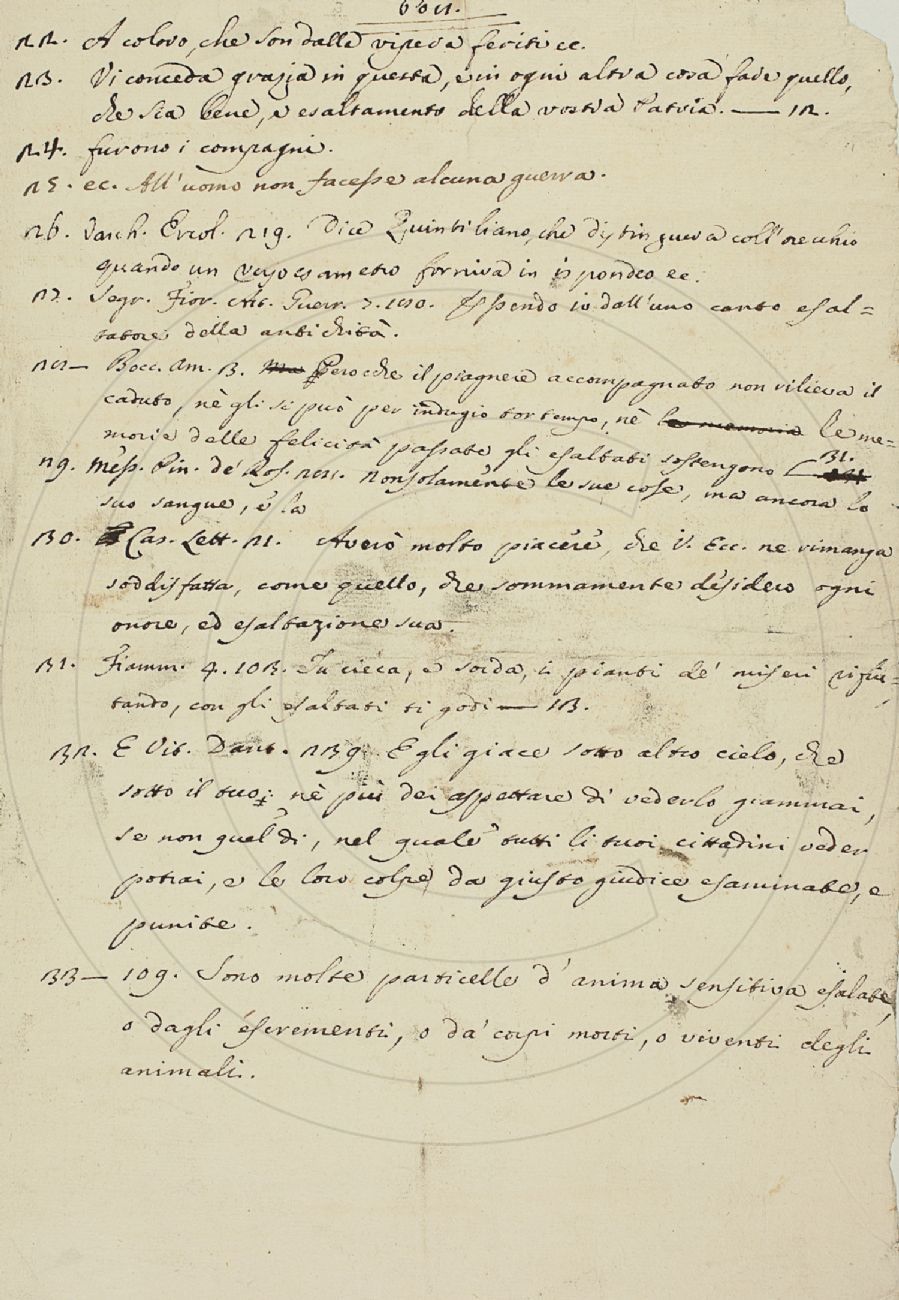 22. A coloro, che son dalla vipera feriti ec.
23. Vi conceda grazia in questa, e in ogni altra cosa fade quello,
che sia bene, e esaltamento della vostra Patria. — 12.
24. furono i compagni.
25. ec. All'uomo non facesse alcuna guerra.
26. Varch. Ercol. 219. Dice Quintiliano, che distingueva coll'orecchio
quando un verso esametro forniva in ispondeo ec.
27. Segr. Fior. Art. Guerr. Essendo io dall'uno canto esal=
tatore della antichità.
Bocc. Am. 3. Perocchè il piagnere accompagnato non rilieva il
caduto, nè gli si può per indugio tor tempo, nè le me=
morie delle felicità passate gli esaltati sostengono 31.
29. Mess. Cin. de' Ros. Non solamente le sue cose, ma ancora lo
suo sangue, è la
30. Cas. Lett. 21. Averò molto piacere, che V. Ecc. ne rimanga
soddisfatta, come quello, che sommamente desidero ogni
onore, ed esaltazione sua.
31. Fiamm. 4. 103. Tu cieca, e sorda, i pianti de' miseri rifiu=
tando, con gli esaltati ti godi — 13.
32. E Vit. Dant. 239. Egli giace sotto altro cielo, che
sotto il tuo; nè più dei aspettare di vederlo giammai,
se non quel dì, nel quale tutti li tuoi cittadini veder
potrai, e le loro colpe da giusto giudice esaminate, e
punite.
33 — 109. Sono molte particelle d'anima sensitiva esalate,
o dagli escrementi, o da' corpi morti, o viventi degli
animali.